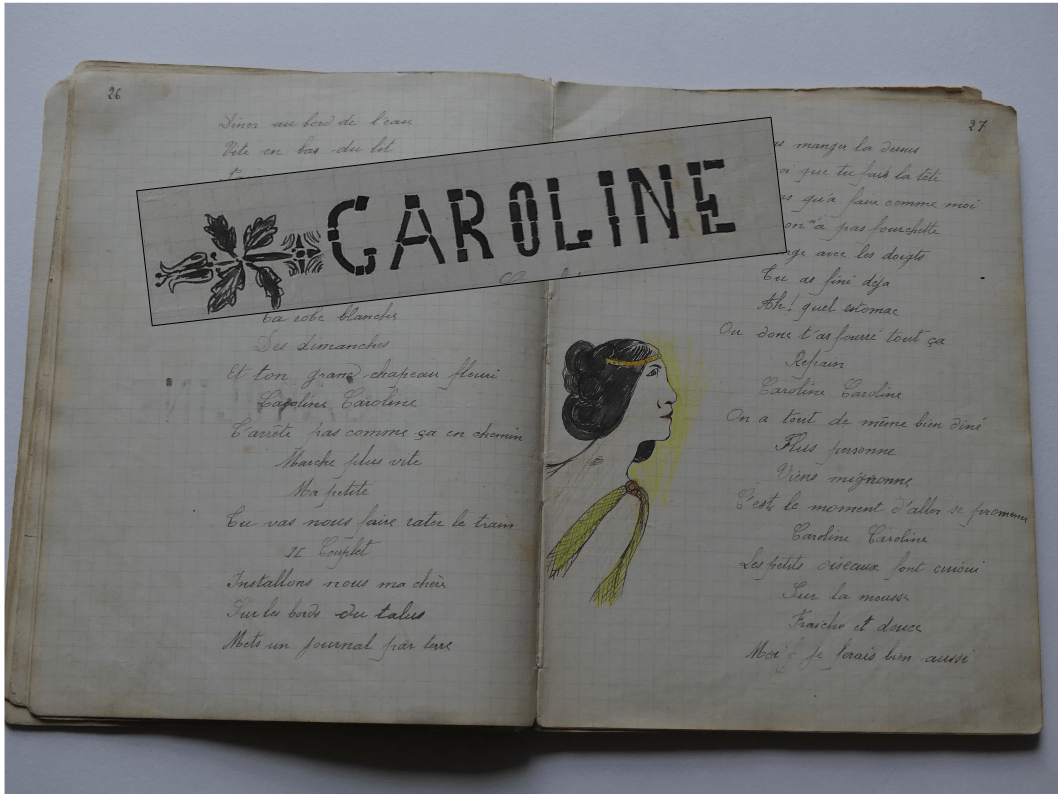 26
Diner au bord de l'eau
Vite en bas du lit
CAROLINE
Ta robe blanche
Des dimanches
Et ton grand chapeau fleuri
Caroline Caroline
T'arrête pas comme ça en chemin
Marche plus vite
Ma petite
Tu vas nous faire rater le train
II Couplet
Installons nous ma chère
Sur les bords du talus
Mets un journal par terre
27
manger la dessus
que tu fais la tête
qu'à faire comme moi
on "a pas fourchette
avec les doigts
Tu as fini déja
Ah! quel estomac
Ou donc t'as fourré tout ça
Refrain
Caroline Caroline
On a tout de même bien diné
Plus personne
Viens mignonne
C'est le moment d'aller se promener
Caroline Caroline
Les petits oiseaux font cuicui
Sur la mousse
Fraiche et douce
Moi je ferais bien aussi